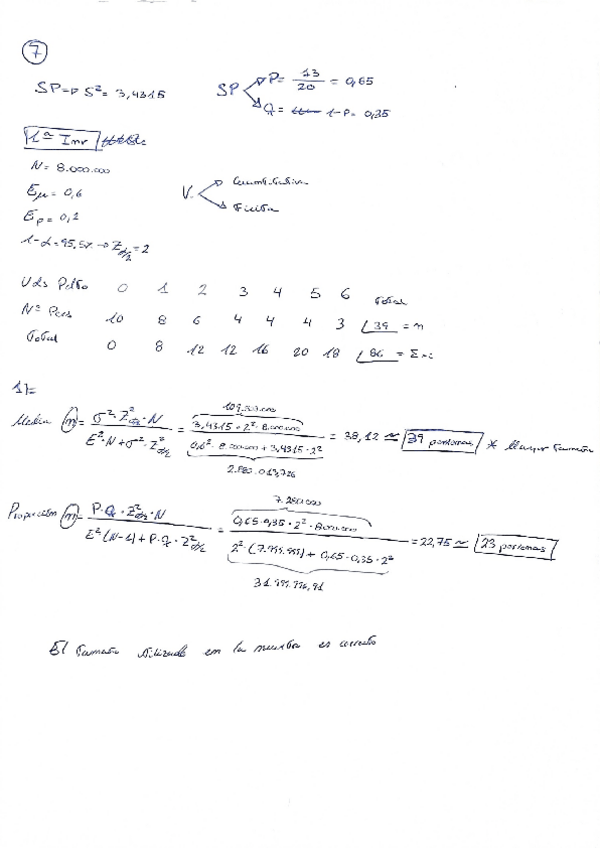 7
SP => S² = 3,4315
SP P = 13/20 = 0,65
Q = 1-P = 0,35
1ª Inv
N = 8.000.000
Eμ = 0,6
V. Cuantitativa
Eρ = 0,2
1-α = 95,5% → Zα/2 = 2
Uds Pelto 0 1 2 3 4 5 6 Total
Nº Pers 10 8 6 4 4 4 3 39 = n
Total 0 8 12 12 16 20 18 86 = Σxi
1)=
Media n = σ²·Z²α/2·N / E²·N + σ²·Z²α/2 = 3,4315·2²·8.000.000 / 0,6²·8.000.000 + 3,4315·2² = 38,12 ≃ 39 personas * Mayor Tamaño
2.880.013,726
7.280.000
Proporción n = P·Q·Z²α/2·N / E²(N-1) + P·Q·Z²α/2 = 0,65·0,35·2²·8.000.000 / 2²·(7.999.999) + 0,65·0,35·2² = 22,75 ≃ 23 personas
31.999.996,91
El tamaño utilizado en la muestra es correcto